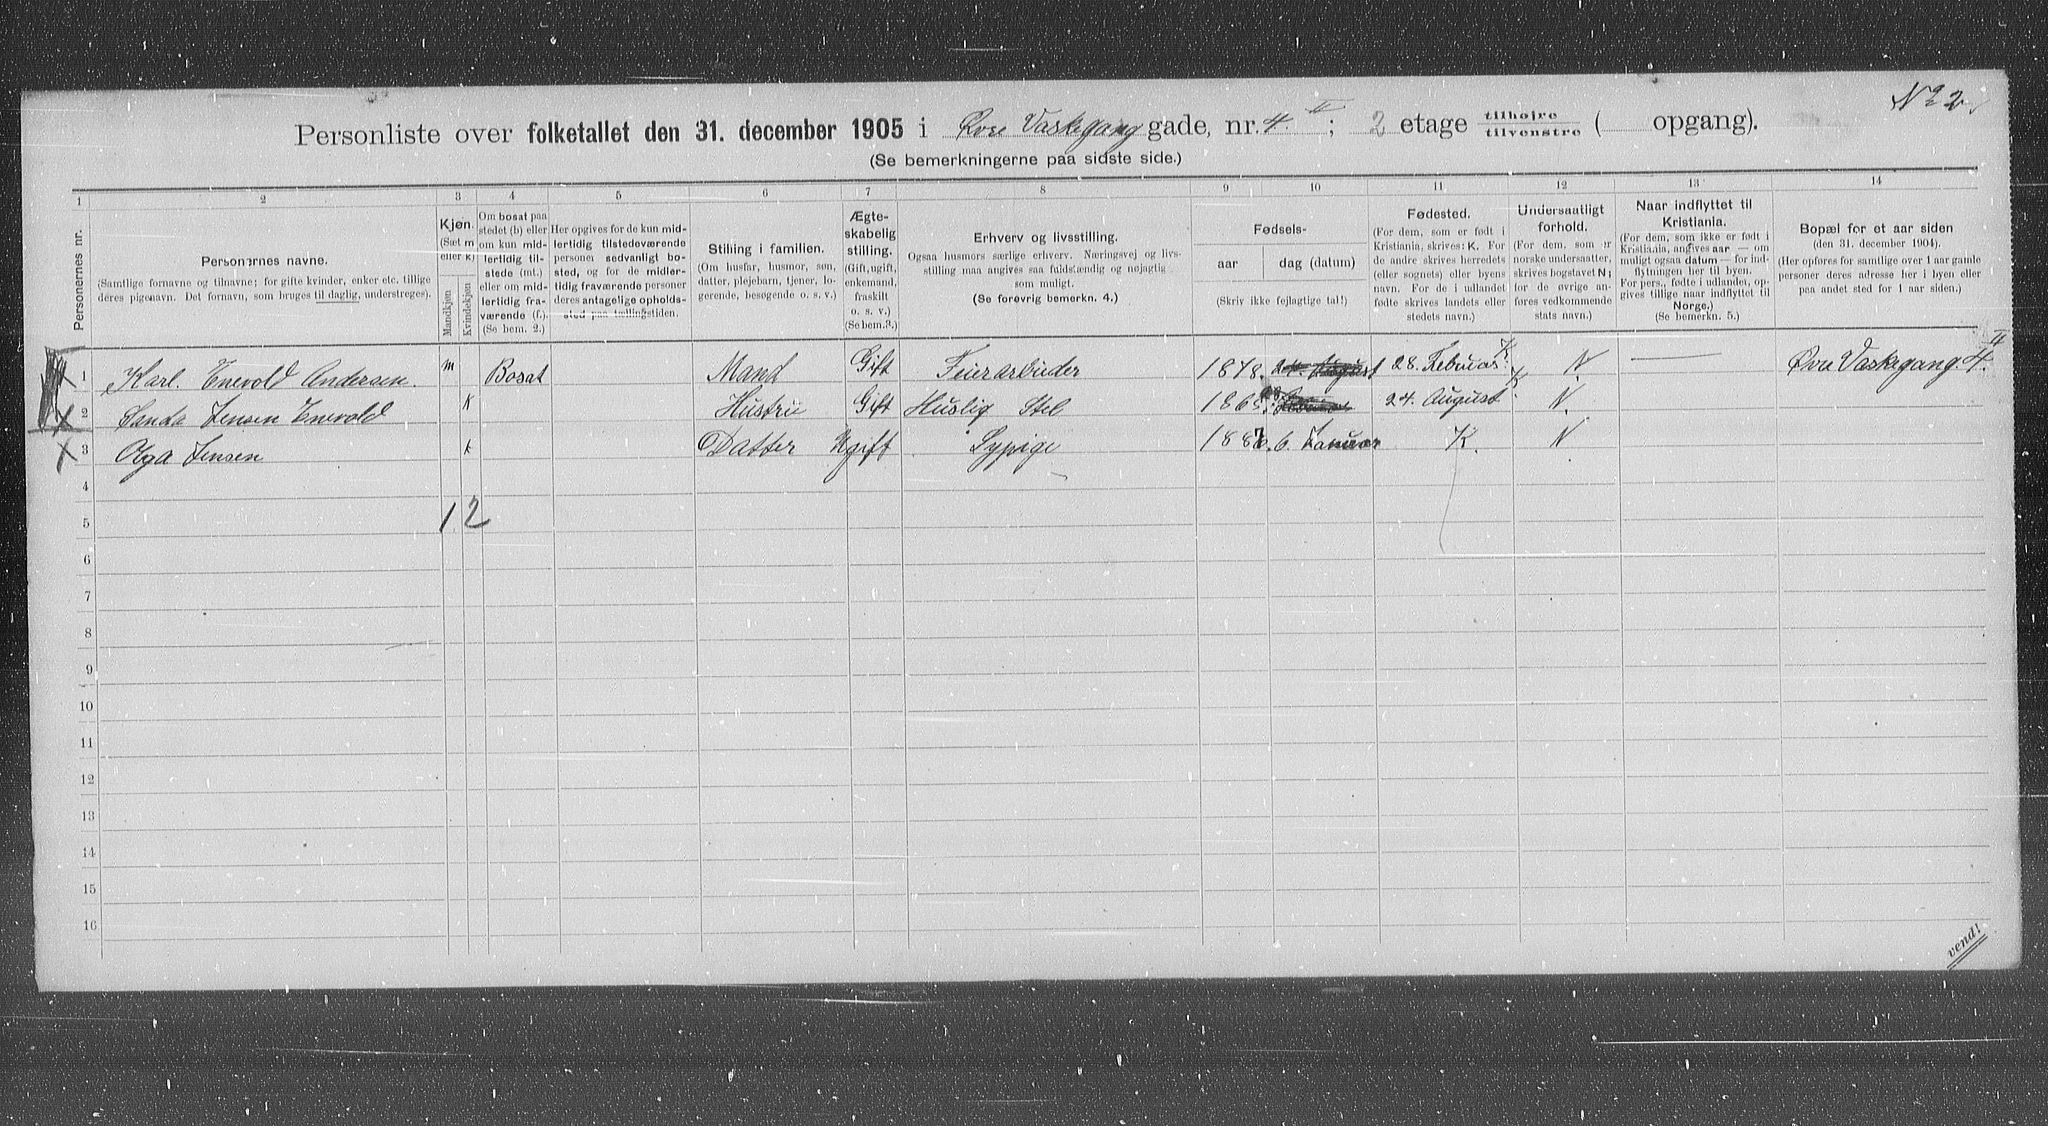 No 2
Personliste over folketallet den 31. december 1905 i Øvre Vaskegang gade, nr. 4. II ; 2 etage tilhøjre / tilvenstre ( opgang).
(Se bemerkningerne paa sidste side.)
1 2 3 4 5 6 7 8 9 10 11 12 13 14
Personernes nr.
Personernes navne.
(Samtlige fornavne og tilnavne; for gifte kvinder, enker etc. tillige
deres pigenavn. Det fornavn, som bruges til daglig, understreges).
Kjøn.
(Sæt m
eller k)
Mandkjøn
Kvindekjøn
Om bosat paa
stedet (b) eller
om kun mid-
lertidig til-
stede (mt.)
eller om mid-
lertidig fra-
værende (f.).
(Se bem. 2.)
Her opgives for de kun mid-
lertidig tilstedeværende
personer sedvanligt bo-
sted, og for de midler-
tidig fraværende personer
deres antagelige opholds-
sted paa tællingstiden.
Stilling i familien.
(Om husfar, husmor, søn,
datter, plejebarn, tjener, lo-
gerende, besøgende o. s. v.)
Ægte-
skabelig
stilling.
(Gift, ugift,
enkemand,
fraskilt
o. s. v.)
(Se bem.3.)
Erhverv og livsstilling.
Ogsaa husmors særlige erhverv. Næringsvej og livs-
stilling maa angives saa fuldstændig og nøjagtig
som muligt.
(Se forøvrig bemerkn. 4.)
Fødsels-
aar dag (datum)
(Skriv ikke fejlagtige tal!)
Fødested.
(For dem, som er født i
Kristiania, skrives: K. For
de andre skrives herredets
(eller sognets) eller byens
navn. For de i udlandet
fødte skrives landets eller
stedets navn.)
Undersaatligt
forhold.
(For dem, som er
norske undersaatter,
skrives bogstavet N;
for de øvrige an-
føres vedkommende
stats navn.)
Naar indflyttet til
Kristiania.
(For dem, som ikke er født i
Kristiania, angives aar — om
muligt ogsaa datum — for ind-
flytningen her til byen.
For pers., fødte i udlandet, op-
gives tillige naar indflyttet til
Norge.)
(Se bemerkn. 5.)
Bopæl for et aar siden
(den 31. december 1904).
(Her opføres for samtlige over 1 aar gamle
personer deres adresse her i byen eller
paa andet sted for 1 aar siden.)
1 Karl. Enevold Andersen. m Bosat Mand Gift Feierarbeider 1878. 28. Februar K. N. — Øvre Vaskegang 4. II
2 Jensen Enevold K Hustru Gift Huslig Stel 24. August K. N.
3 Olga Jensen k Datter Ugift Sypige 6. Januar K. N
4
5 1 2
6
7
8
9
10
11
12
13
14
15
16
vend!